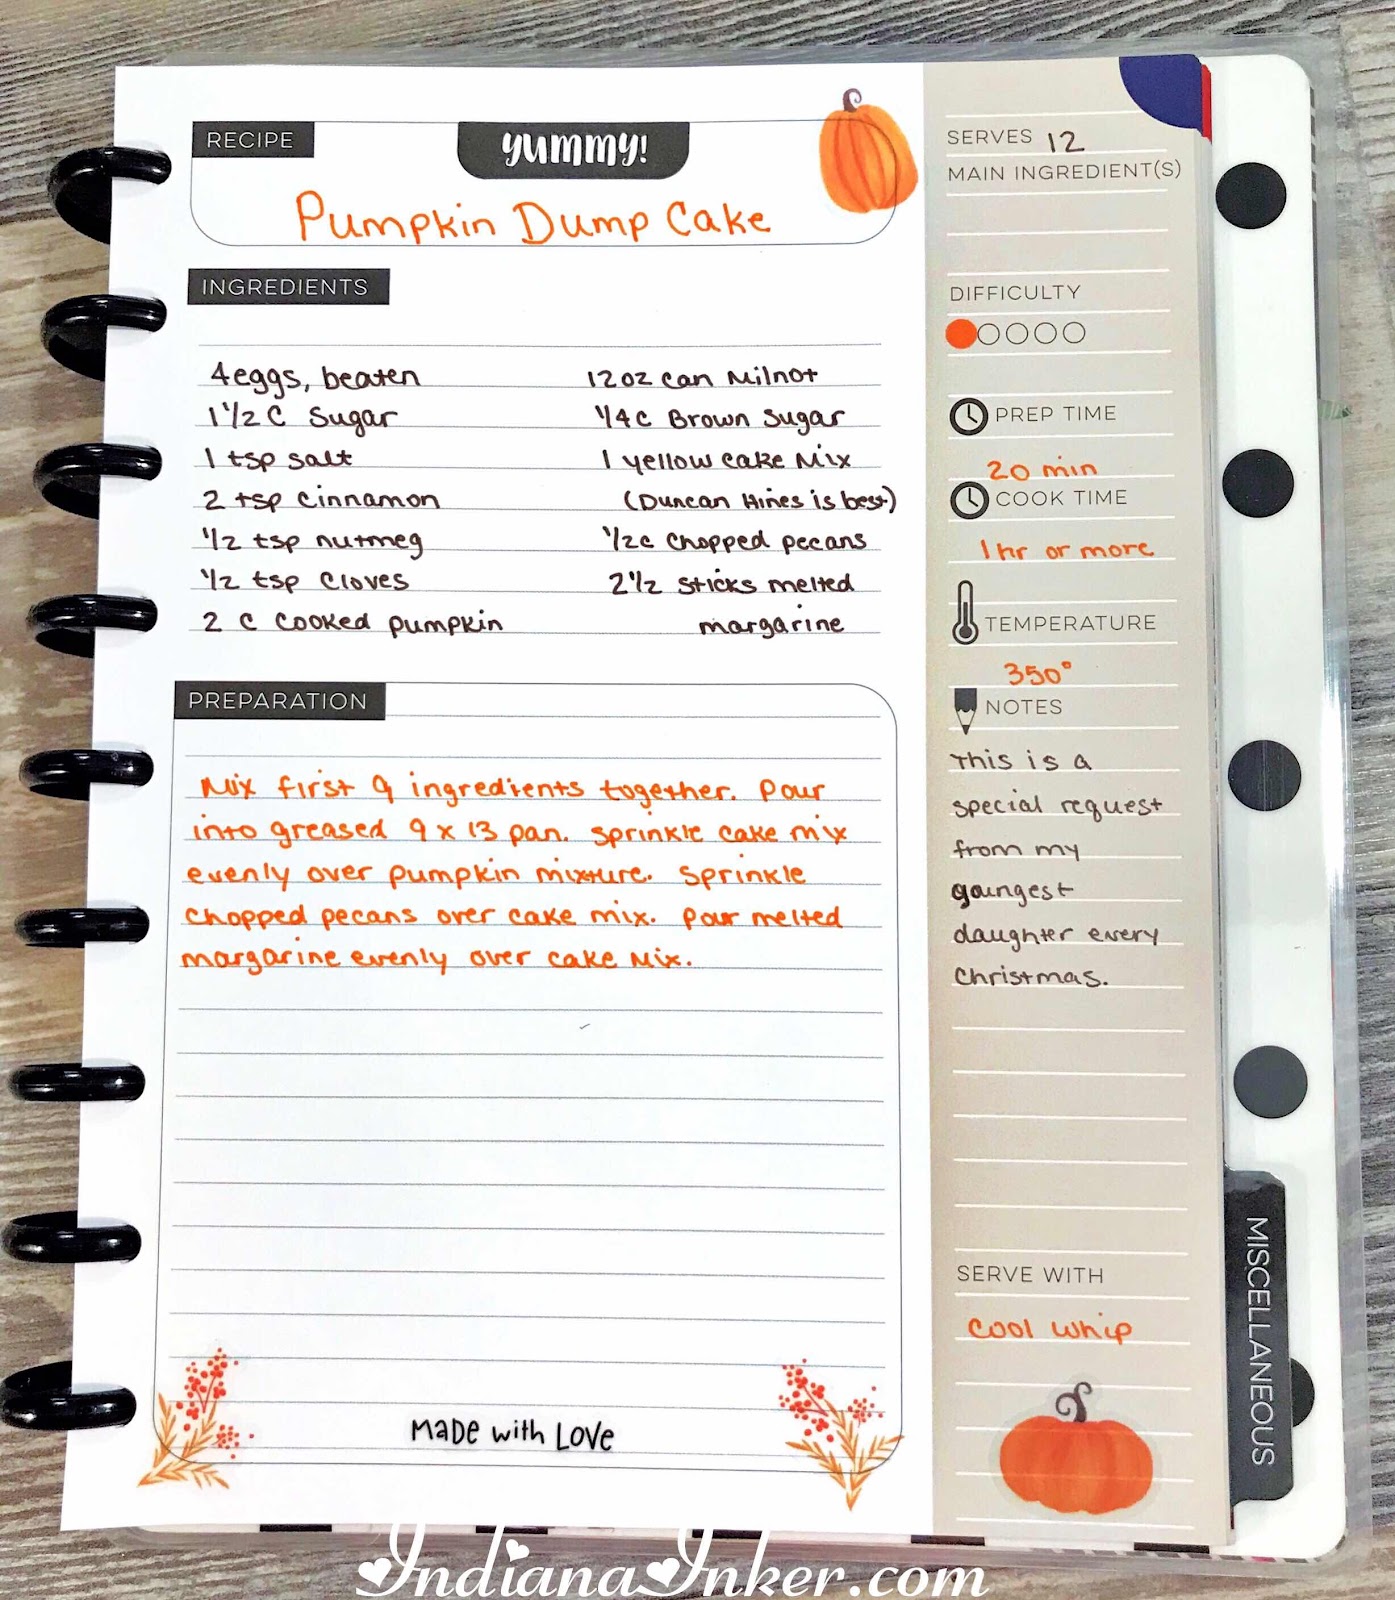 RECIPE
YUMMY!
Pumpkin Dump Cake
INGREDIENTS
4 eggs, beaten
1 1/2 C Sugar
1 tsp salt
2 tsp cinnamon
1/2 tsp nutmeg
1/2 tsp cloves
2 C cooked pumpkin
12 oz can Milnot
1/4 c Brown Sugar
1 yellow cake mix
(Duncan Hines is best)
1/2 c chopped pecans
2 1/2 sticks melted
margarine
PREPARATION
Mix first 9 ingredients together. Pour
into greased 9 x 13 pan. Sprinkle cake mix
evenly over pumpkin mixture. Sprinkle
chopped pecans over cake mix. Pour melted
margarine evenly over cake mix.
MADE with LOVE
SERVES 12
MAIN INGREDIENT(S)
DIFFICULTY
PREP TIME
20 min
COOK TIME
1 hr or more
TEMPERATURE
350°
NOTES
This is a
special request
from my
youngest
daughter every
Christmas.
SERVE WITH
Cool Whip
MISCELLANEOUS
IndianaInker.com